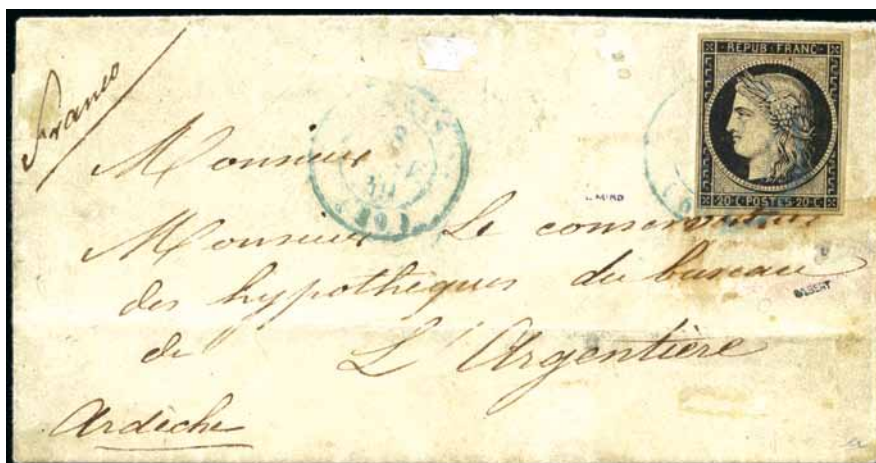 Franco
REPUB. FRANC.
20·C·POSTES·20·C
Monsieur
Monsieur Le conservateur
des hypothèques du bureau
de L'Argentière
Ardèche